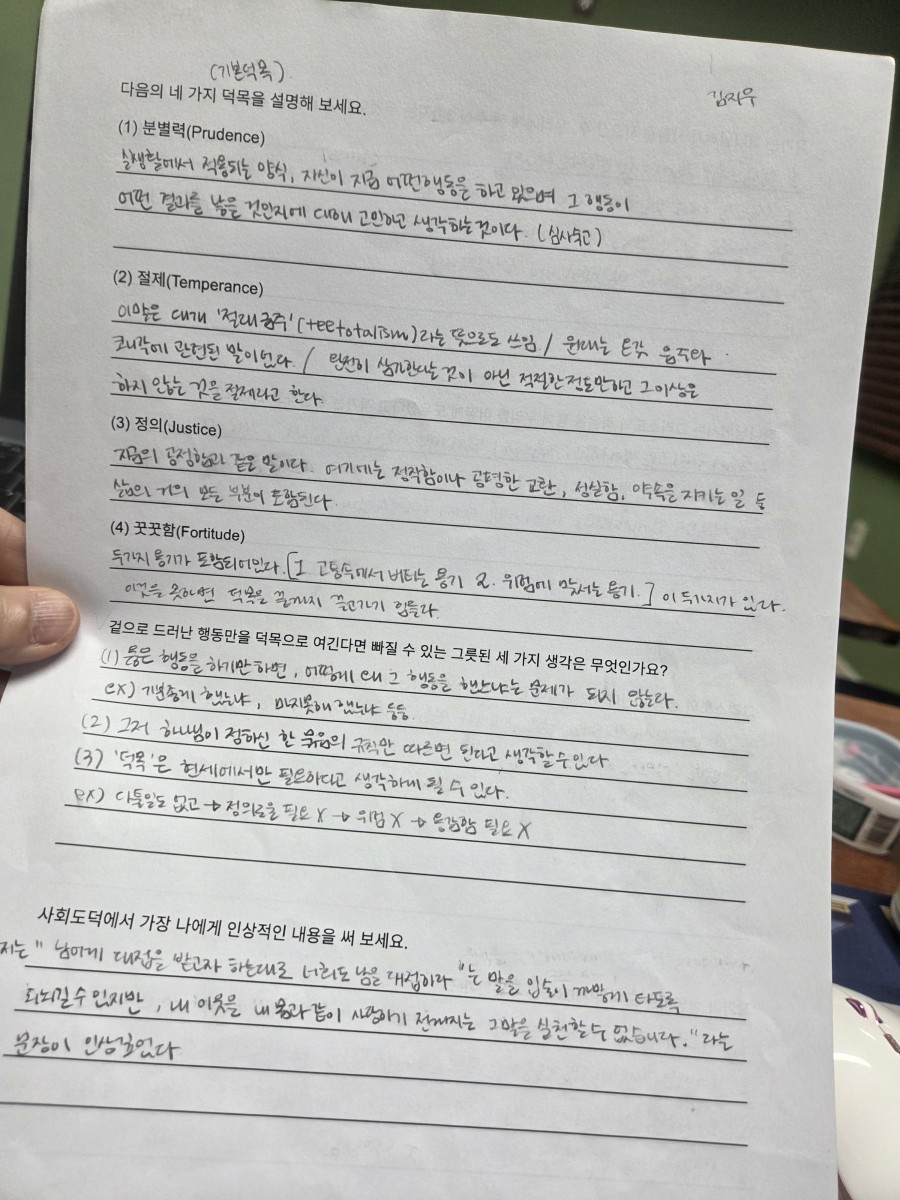 (기본덕목)
다음의 네 가지 덕목을 설명해 보세요.
김지우
(1) 분별력(Prudence)
실생활에서 적용되는 양식, 자신이 지금 어떤행동을 하고 있으며 그 행동이
어떤 결과를 낳을 것인지에 대해 고민하고 생각하는것이다. (심사숙고)
(2) 절제(Temperance)
이말은 대개 '절대금주' (teetotalism)라는 뜻으로도 쓰임. / 원래는 온갖 음주와
쾌락에 관련된 말이었다. / 완전히 삼가한다는 것이 아닌 적절한 정도만하고 그이상은
하지 않는 것을 절제라고 한다.
(3) 정의(Justice)
지금의 공정함과 같은 말이다. 여기에는 정직함이나 공평한 교환, 성실함, 약속을 지키는 일 등
삶의 거의 모든 부분이 포함된다.
(4) 꿋꿋함(Fortitude)
두가지 용기가 포함되어있다. [1 고통속에서 버티는 용기 2. 위험에 맞서는 용기.] 이 두가지가 있다.
이것을 못하면 덕목을 끝까지 끌고가기 힘들다.
겉으로 드러난 행동만을 덕목으로 여긴다면 빠질 수 있는 그릇된 세 가지 생각은 무엇인가요?
(1) 옳은 행동을 하기만 하면, 어떻게 왜 그 행동을 했느냐는 문제가 되지 않는다.
ex) 기분좋게 했느냐, 마지못해 했느냐 등등.
(2) 그저 하나님이 정하신 한 묶음의 규칙만 따르면 된다고 생각할수있다.
(3) '덕목'은 현세에서만 필요하다고 생각하게 될 수 있다.
ex) 다툴일도 없고 → 정의로울 필요 X → 위험 X → 용감함 필요 X
사회도덕에서 가장 나에게 인상적인 내용을 써 보세요.
저는 " 남에게 대접을 받고자 하는대로 너희도 남을 대접하라 "는 말을 입술이 까맣게 타도록
되뇌일수 있지만, 내 이웃을 내 몸과 같이 사랑하기 전까지는 그말을 실천할 수 없습니다." 라는
문장이 인상깊었다